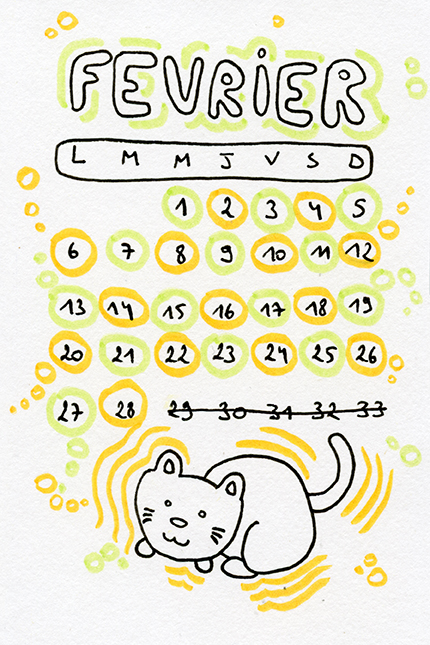 FEVRiER
L M M J V S D
1 2 3 4 5
6 7 8 9 10 11 12
13 14 15 16 17 18 19
20 21 22 23 24 25 26
27 28 29 30 31 32 33